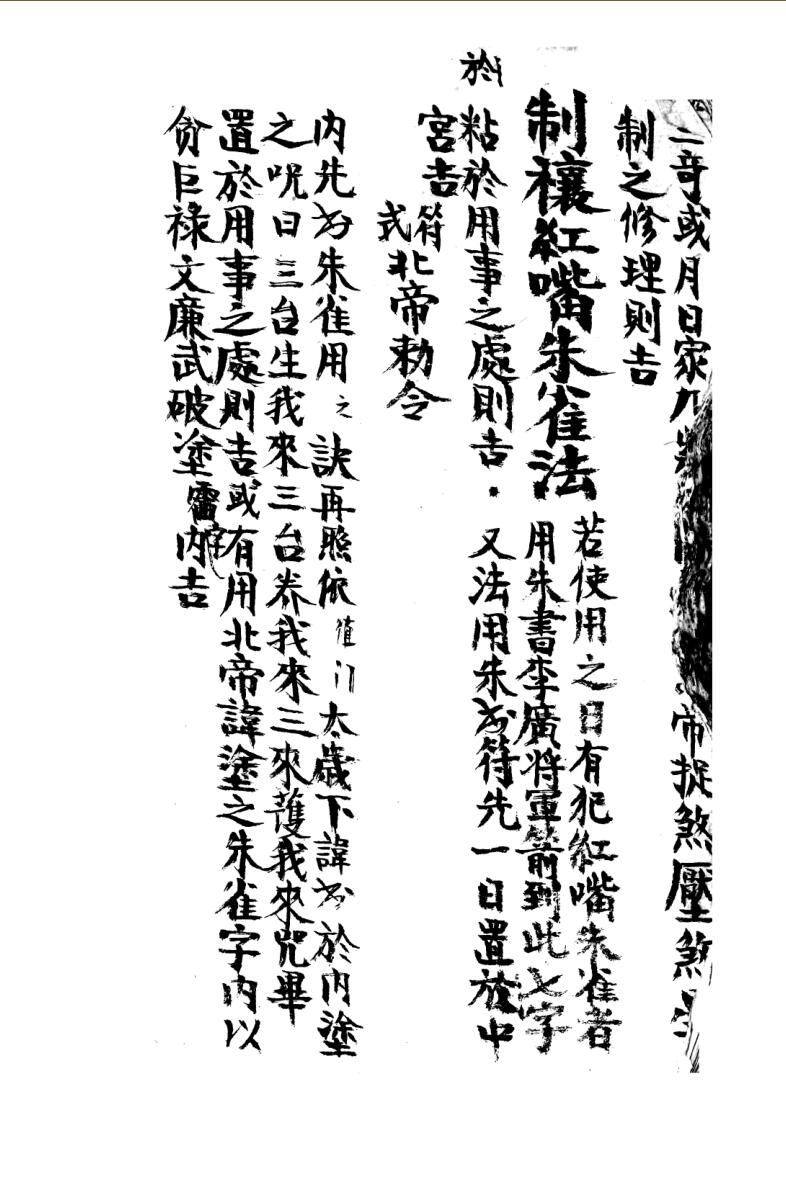 二奇或月日家九紫帝捉煞壓煞
制之修理則吉
制禳紅嘴朱雀法
若使用之日有犯紅嘴朱雀者
用朱書李廣将軍箭到此七字
於
粘於用事之處則吉·又法用朱书符先一日置於中
宮吉
符式
北帝勅令
内先书朱雀用之訣再照依值门太歲下諱书於内塗
之呪曰三台生我來三台养我來三來護我來咒畢
置於用事之處則吉或有用北帝諱塗之朱雀字内以
貪巨祿文廉武破塗畲字内吉